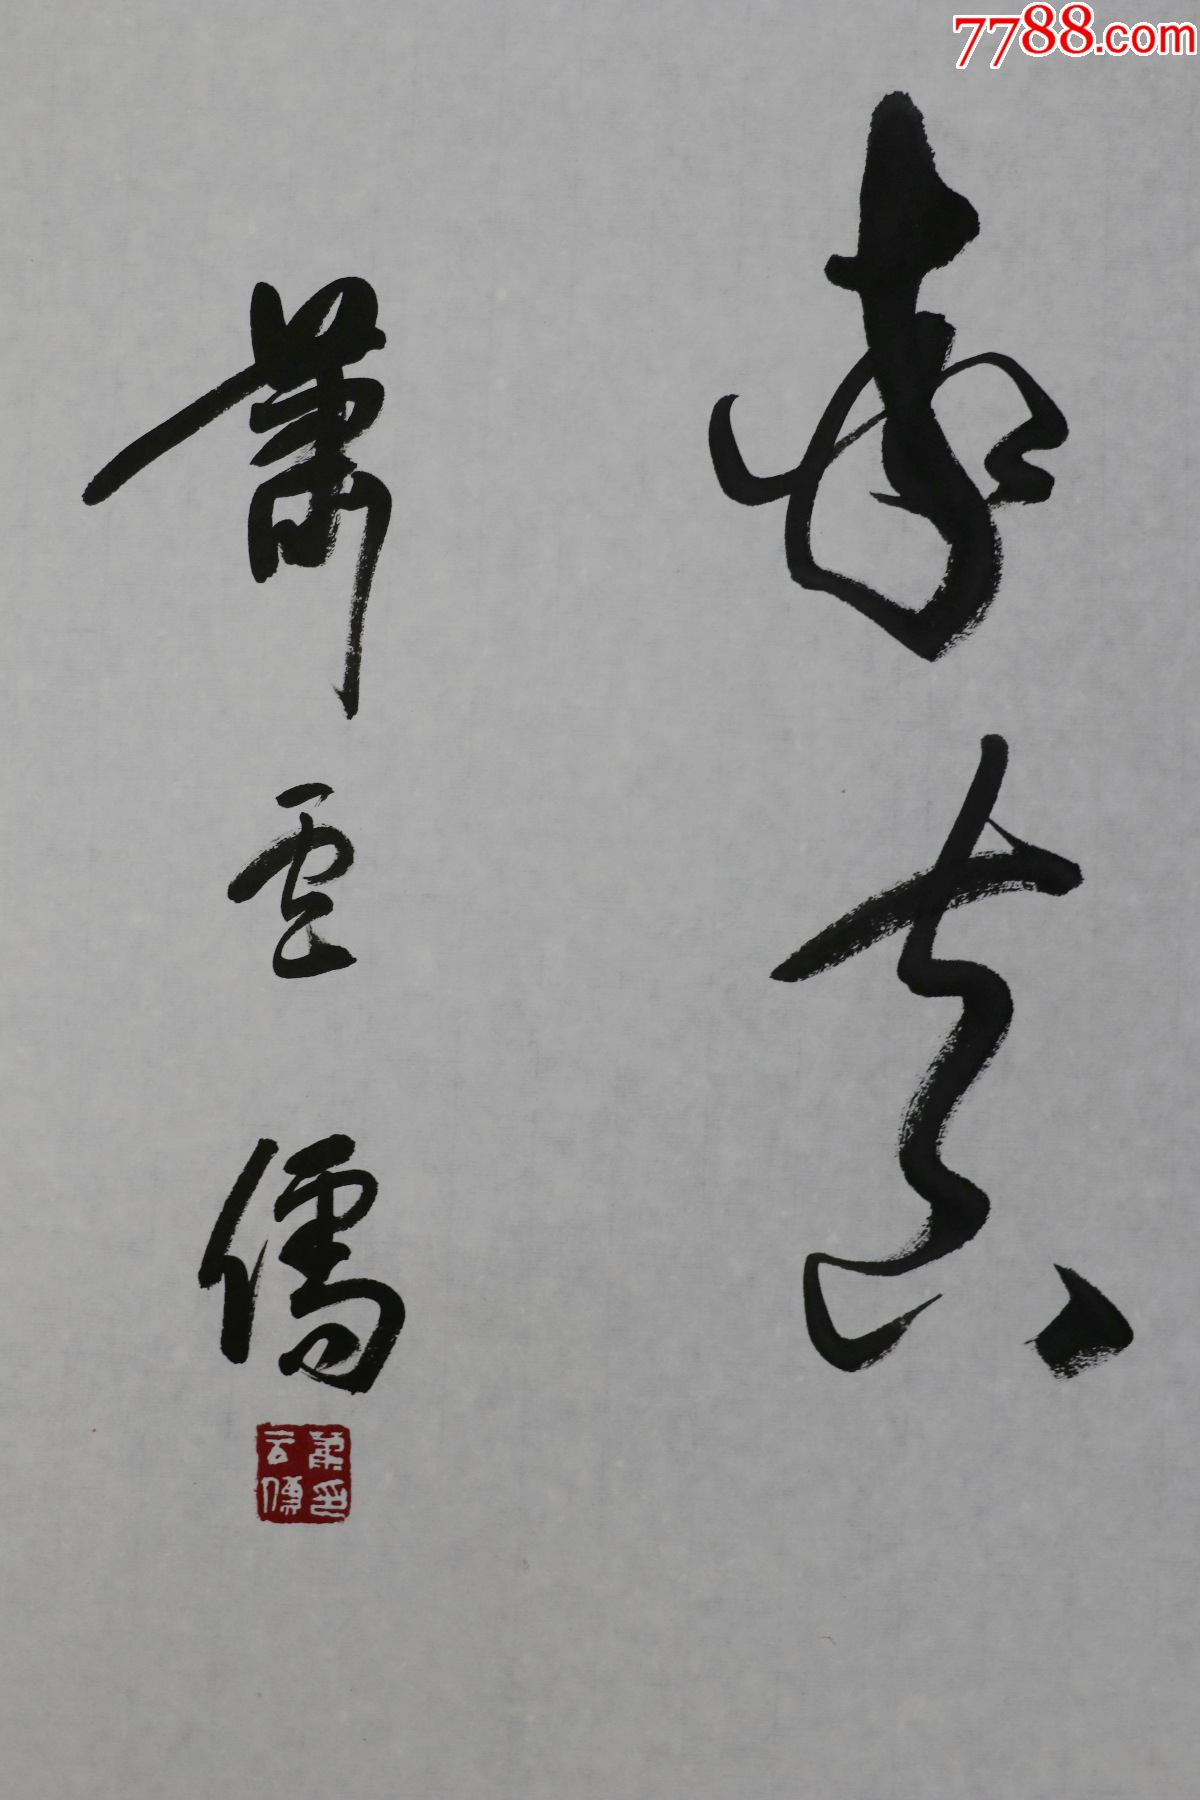 7788.com
率真
萧云儒
萧云儒印